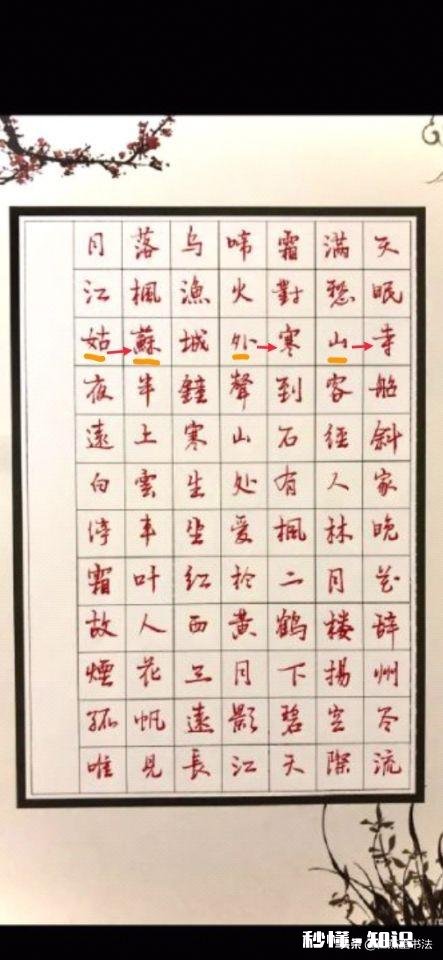 月落乌啼霜满天
江楓漁火對愁眠
姑蘇城外寒山寺
夜半鐘聲到客船
遠上寒山石經斜
白雲生处有人家
停车坐爱楓林晚
霜叶红於二月花
故人西黄鹤楼辞
煙花三月下揚州
孤帆遠影碧空尽
唯見長江天際流
秒懂·知识
书法